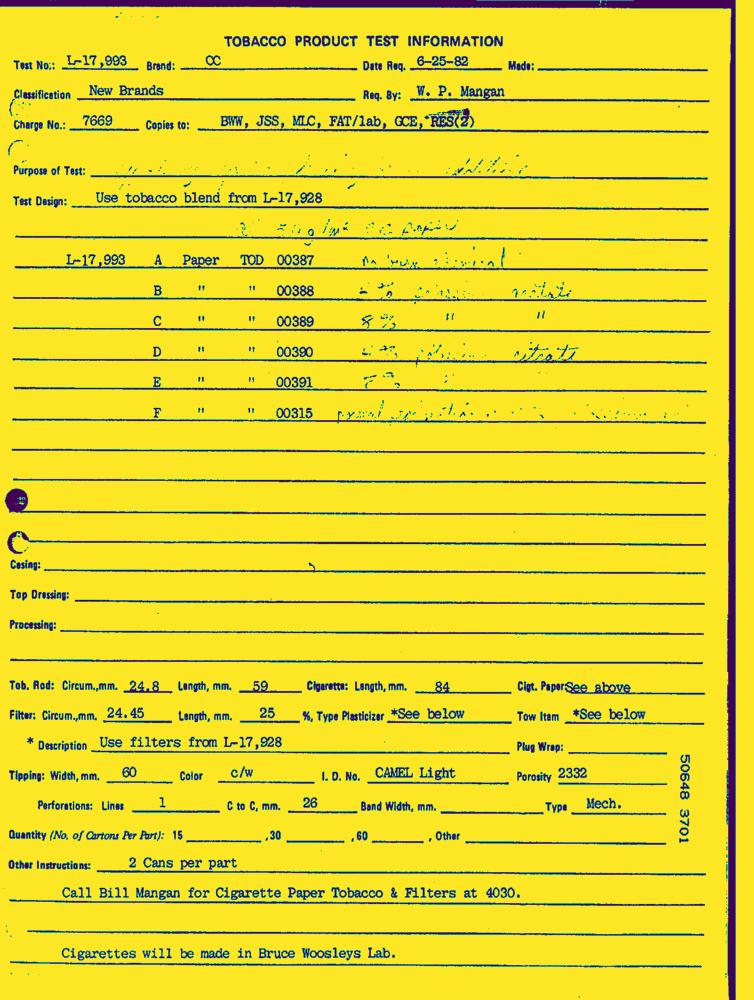 TOBACCO PRODUCT TEST INFORMATION
Test No.: L-17,993 Brand: CC Date Req. 6-25-82 Made:
Classification New Brands Req. By: W. P. Mangan
Charge No.: 7669 Copies to: BWW, JSS, MLC, FAT/lab, GCE, RES(2)
Purpose of Test:
Test Design: Use tobacco blend from L-17,928
paper
L-17,993 A Paper TOD 00387
B " " 00388
C " " 00389 8% " "
D " " 00390 citrate
E " " 00391
F " " 00315
Casing:
Top Dressing:
Processing:
Tob. Rod: Circum.,mm. 24.8 Length, mm. 59 Cigarette: Length, mm. 84 Cigt. Paper See above
Filter: Circum.,mm. 24.45 Length, mm. 25 %, Type Plasticizer *See below Tow Item *See below
* Description Use filters from L-17,928 Plug Wrap:
Tipping: Width, mm. 60 Color c/w I. D. No. CAMEL Light Porosity 2332
Perforations: Lines 1 C to C, mm. 26 Band Width, mm. Type Mech.
Quantity (No. of Cartons Per Part): 15 ,30 ,60 , Other
Other Instructions: 2 Cans per part
Call Bill Mangan for Cigarette Paper Tobacco & Filters at 4030.
Cigarettes will be made in Bruce Woosleys Lab.
50648 3701